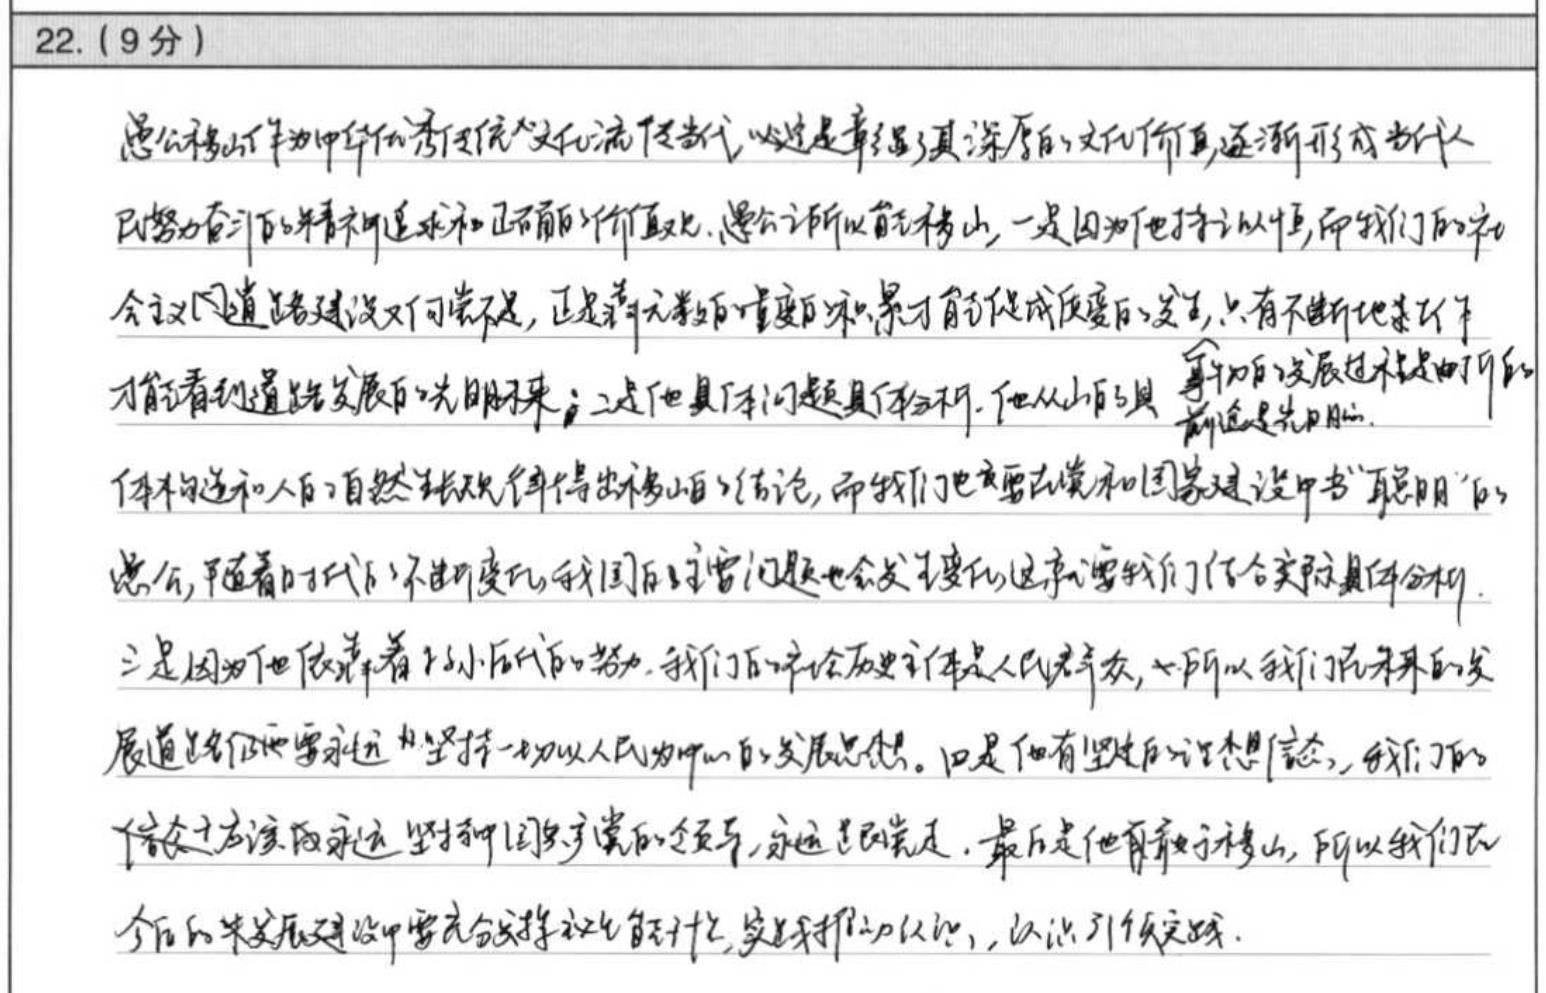 22.(9分)
愚公移山作为中华优秀传统文化流传当代,必定是彰显了其深厚的文化价值,逐渐形成当代人
民努力奋斗的精神追求和正确的价值观.愚公之所以能移山,一是因为他持之以恒,而我们的社
会主义道路建设又何尝不是,正是靠无数的量变的积累才能促成质变的发生,只有不断地
才能看到道路发展的光明未来;二是他具体问题具体分析.他从山的具
事物的发展过程是曲折的
前途是光明的.
体构造和人的自然生长规律得出移山的结论,而我们也要在党和国家建设中当“聪明”的
愚公,随着时代的不断变化,我国的主要问题也会发生变化,这就需要我们结合实际具体分析.
三是因为他依靠着子孙后代的努力.我们的社会历史主体是人民群众,所以我们在未来的发
展道路仍需要永远坚持一切以人民为中心的发展思想。四是他有坚定的理想信念,我们的
信念应该永远坚持中国共产党的领导,永远跟党走.最后是他敢于移山,所以我们在
今后的发展建设中要充分发挥主观能动性,实践推动认识,认识引领实践.